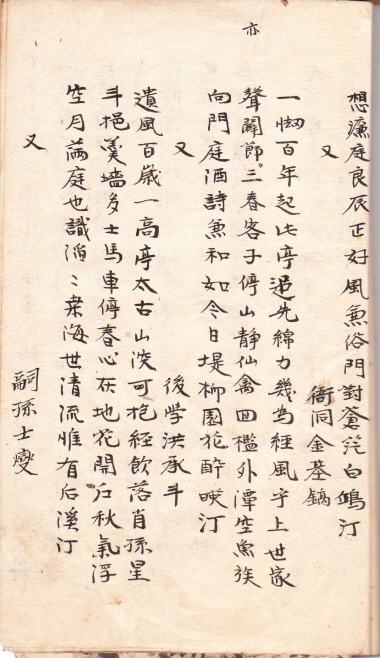 亦
想濂庭良辰正好風兼俗門對蒼茫白鷗汀
衙洞金基鎬
又
一㘭百年起此亭追先綿力幾为經風宇上世家
聲闡節三春客子停山静仙禽回檻外潭空魚族
向門庭酒詩兼和如今日堤柳園花醉暎汀
後學洪承斗
又
遺風百歲一高亭太古山深可抱經飲落肖孫星
斗挹羹墻多士馬車停春心灰地花開后秋氣浮
空月滿庭也識滔〻桒海世清流惟有后溪汀
嗣孫士燮
又